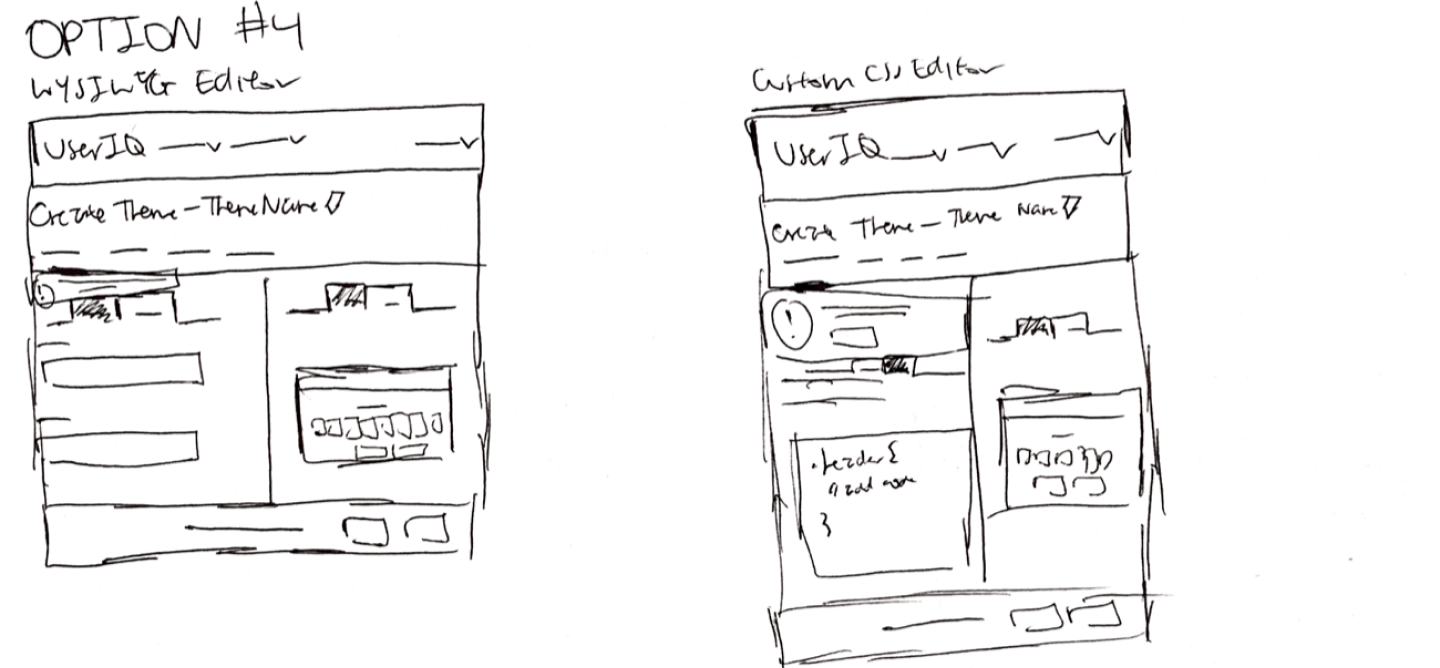 OPTION #4
WYSIWYG Editor
UserIQ
Create Theme - Theme Name
!
Custom CSS Editor
UserIQ
Create Theme - Theme Name
!
.header{
}